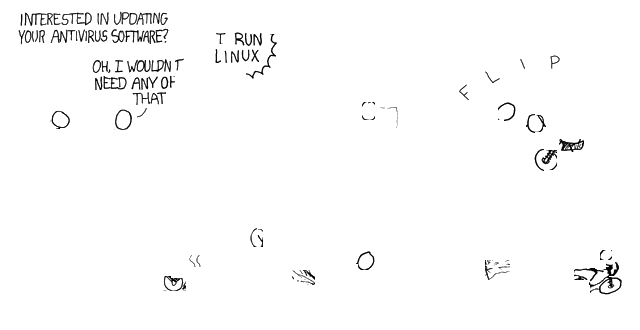 INTERESTED IN UPDATING
YOUR ANTIVIRUS SOFTWARE?
OH, I WOULDN T
NEED ANY OF
THAT
T RUN
LINUX
FLIP